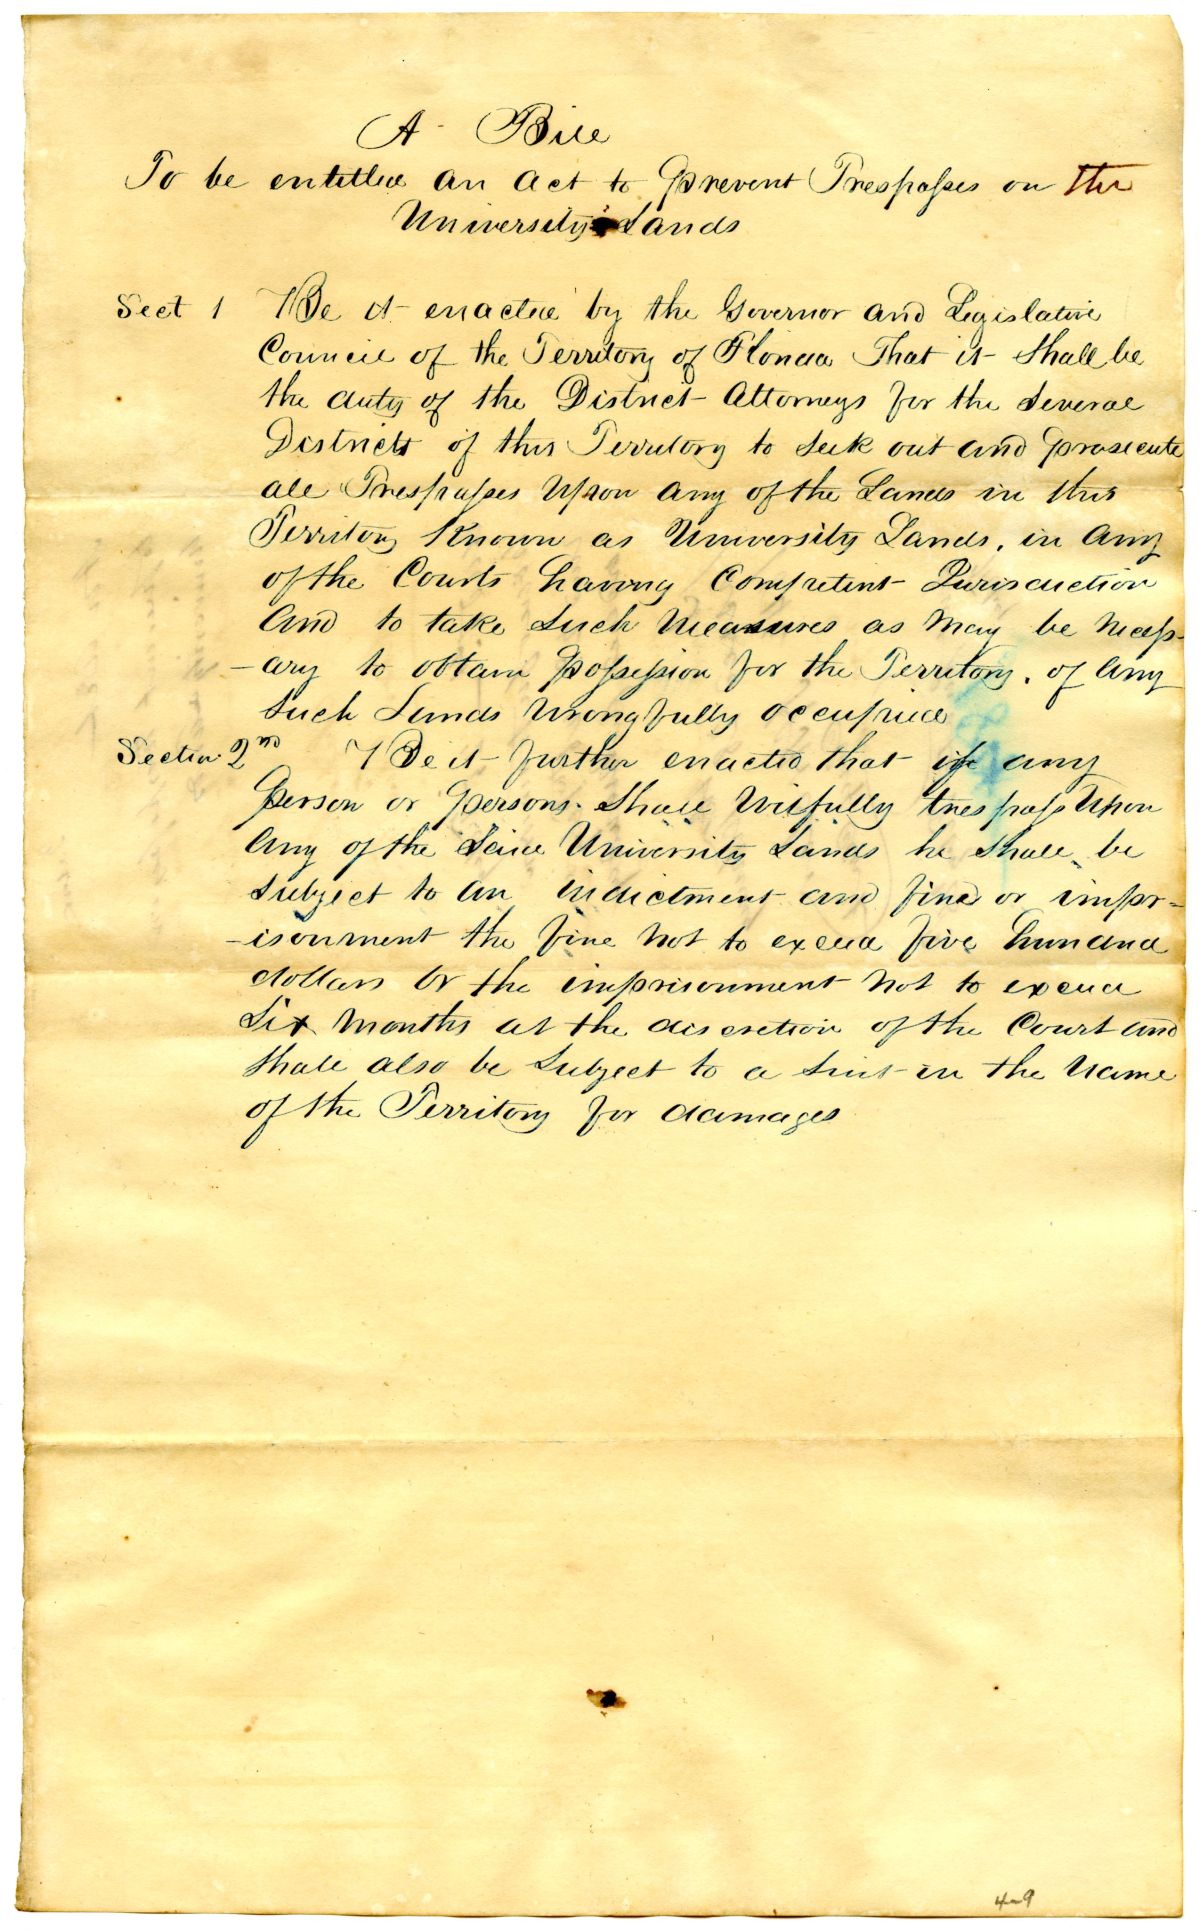 A Bill
To be entitled an act to prevent Trespasses on the
University Lands
Sect 1 Be it enacted by the Governor and Legislative
Council of the Territory of Florida That it shall be
the duty of the District Attorneys for the several
Districts of this Territory to seek out and prosecute
all Trespasses upon any of the Lands in this
Territory Known as University Lands, in any
of the Courts having Competent Jurisdiction
And to take such measures as may be necess-
-ary to obtain possession for the Territory, of any
such Lands wrongfully occupied
Section 2nd Be it further enacted that if any
person or persons shall wilfully trespass upon
any of the said University Lands he shall be
subject to an indictment and fine or impr-
-isonment the fine not to exceed five hundred
dollars or the imprisonment not to exceed
Six months at the discretion of the Court and
shall also be subject to a suit in the name
of the Territory for damages
4-9